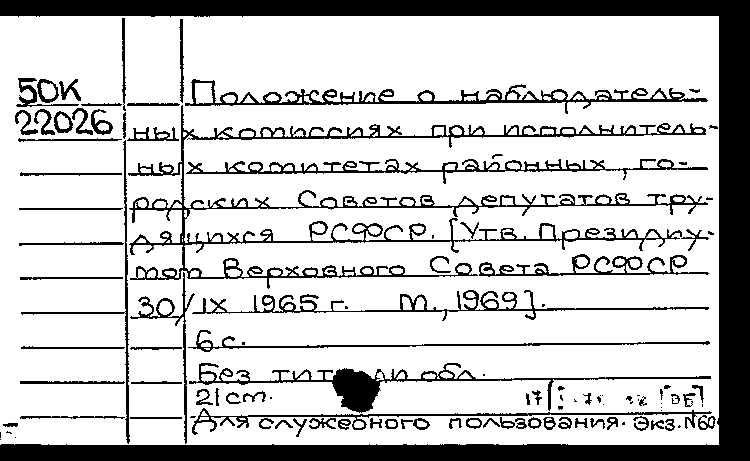 50К
22026
Положение о наблюдатель-
ных комиссиях при исполнитель-
ных комитетах районных, го-
родских Советов депутатов тру-
дящихся РСФСР. [Утв. Президиу-
мом Верховного Совета РСФСР
30/IX 1965 г. М., 1969].
6 с.
Без тит. обл.
21 cm.
Для служебного пользования. Экз. N60